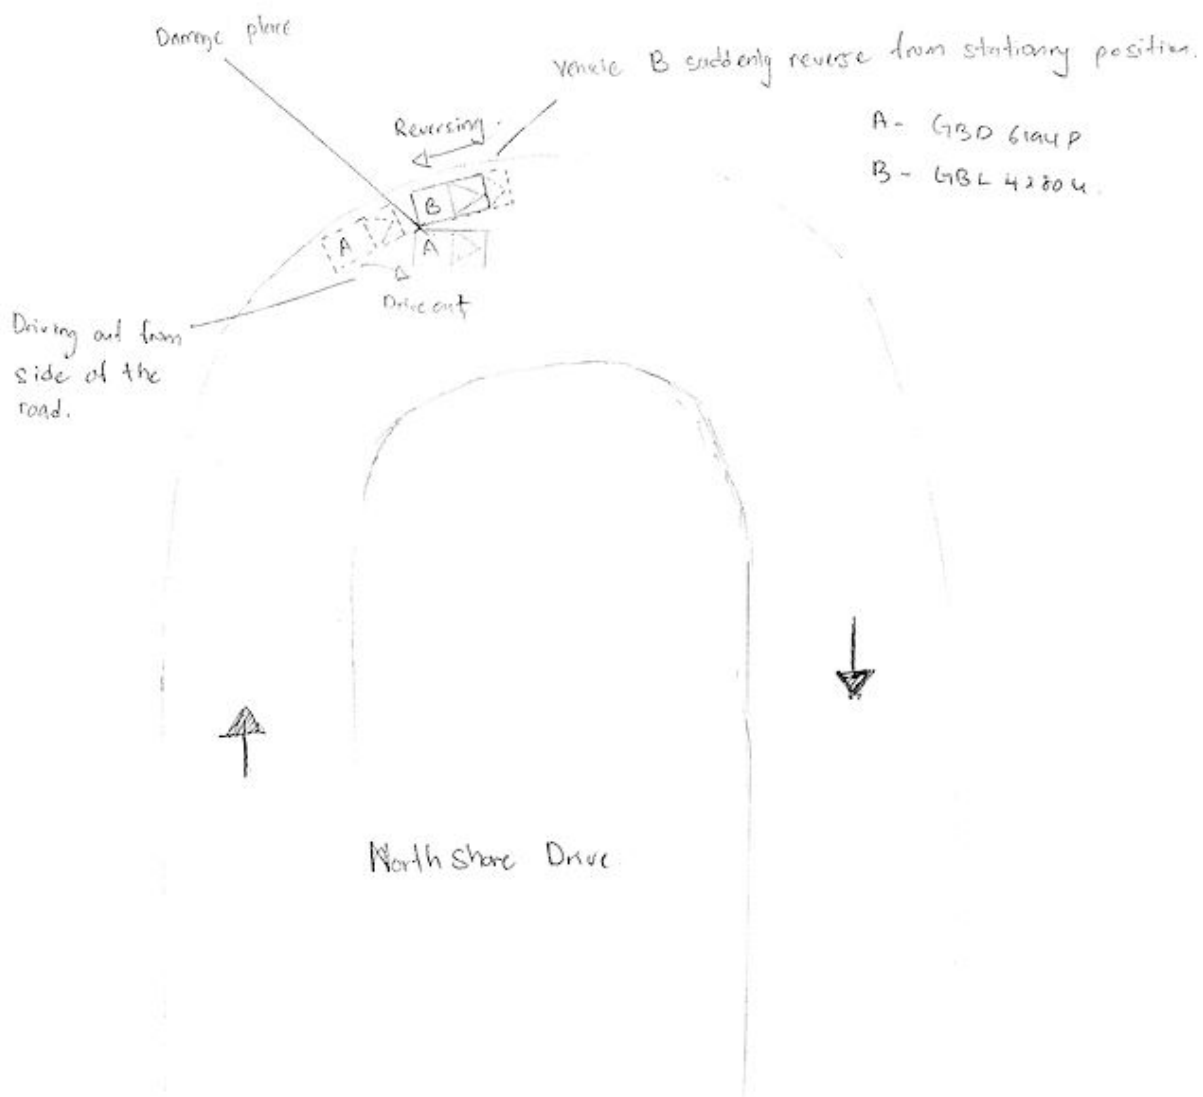 Damage place
Vehicle B suddenly reverse from stationary position.
Reversing.
A - GBD 6194P
B - GBL 4280U.
B
A
A
Drive out
Driving out from
side of the
road.
North Shore Drive